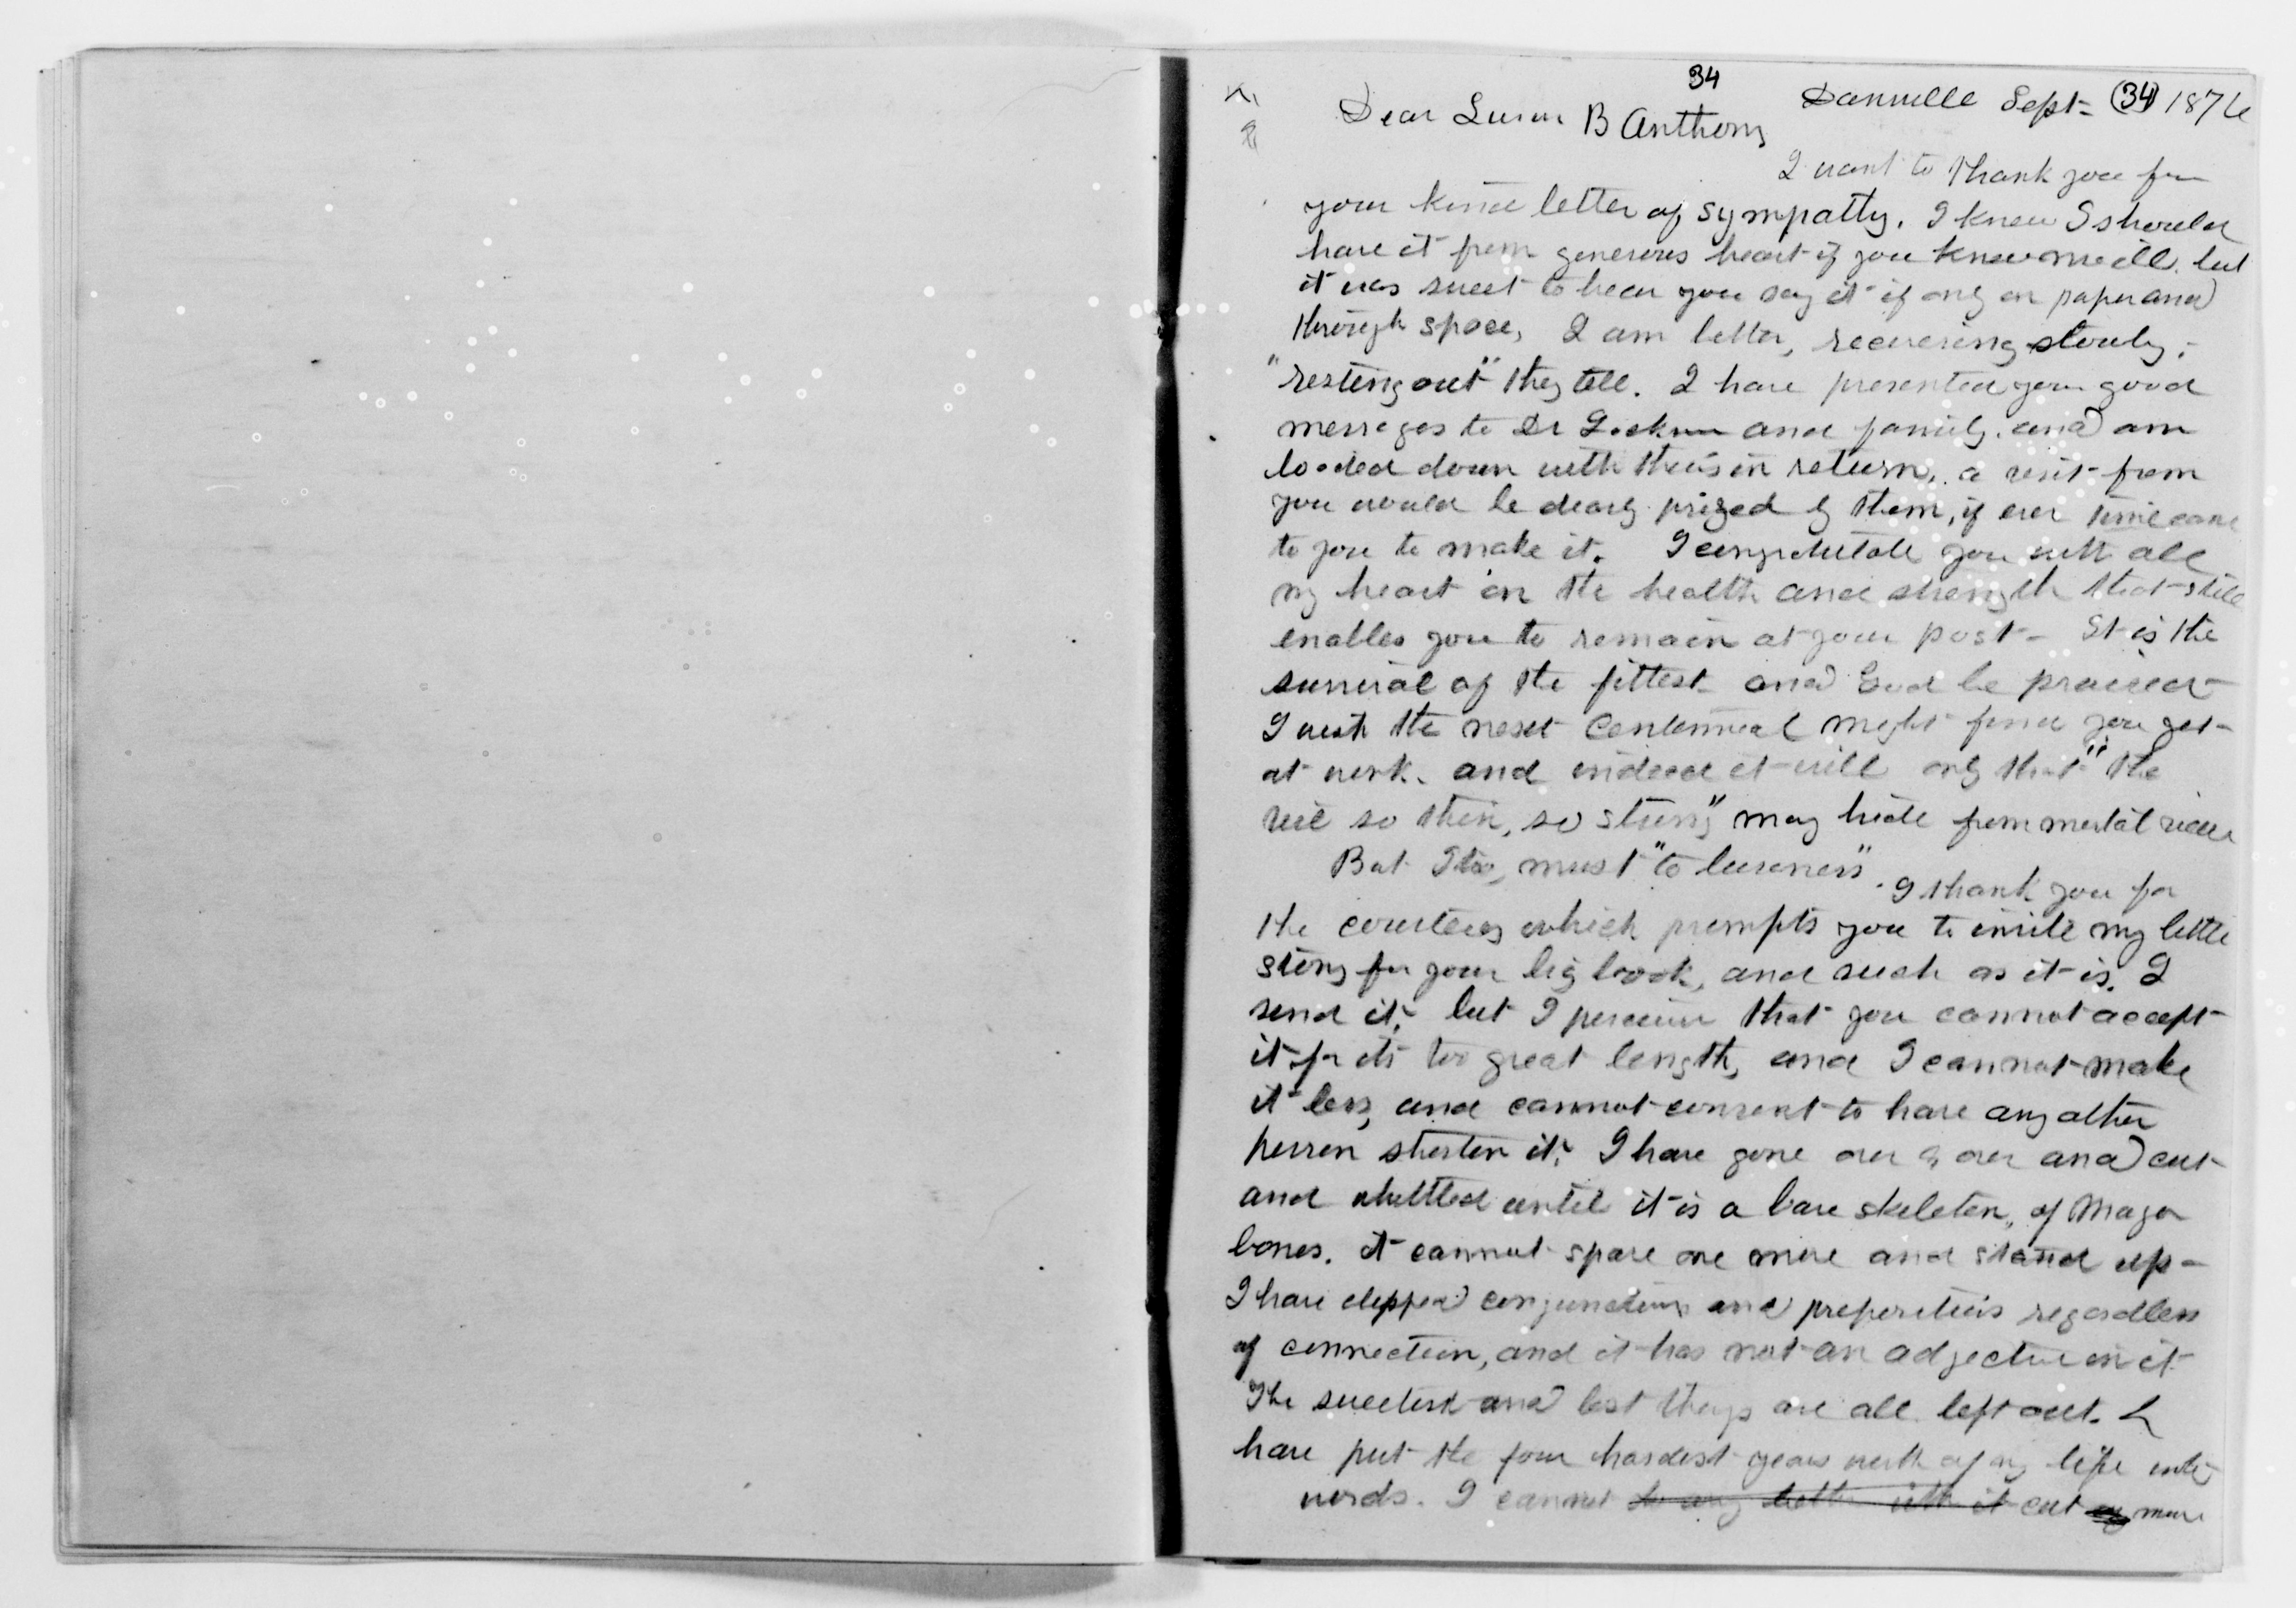 34
Dansville Sept- (34) 1876
Dear Susan B Anthony
I want to thank you for
your kind letter of sympathy. I knew I should
have it from generous heart if you knew me ill. but
it was sweet to hear you say it if only on paper and
through space, I am better, recovering slowly,
"resting out" they tell. I have presented your good
messages to Dr Jackson and family. and am
loaded down with theirs in return. a visit from
you would be dearly prized by them, if ever time came
to you to make it. I congratulate you with all
my heart on the health and strength that still
enables you to remain at your post - It is the
survival of the fittest and God be praised
I wish the next Centennial might find you yet
at work. and indeed it will only that "the
veil so thin, so strong" may hide from mortal view
But I too, must "to business". I thank you for
the courtesy which prompts you to invite my little
story for your big book, and such as it is, I
send it, but I perceive that you cannot accept
it for its too great length, and I cannot make
it less, and cannot consent to have any other
person shorten it. I have gone over & over and cut
and whittled until it is a bare skeleton, of Major
bones. it cannot spare one more and stand up -
I have clipped conjunctions and prepositions regardless
of connection, and it has not an adjective in it
The sweetest and best things are all left out. I
have put the four hardest years work of my life into
words. I cannot do any better with it cut more